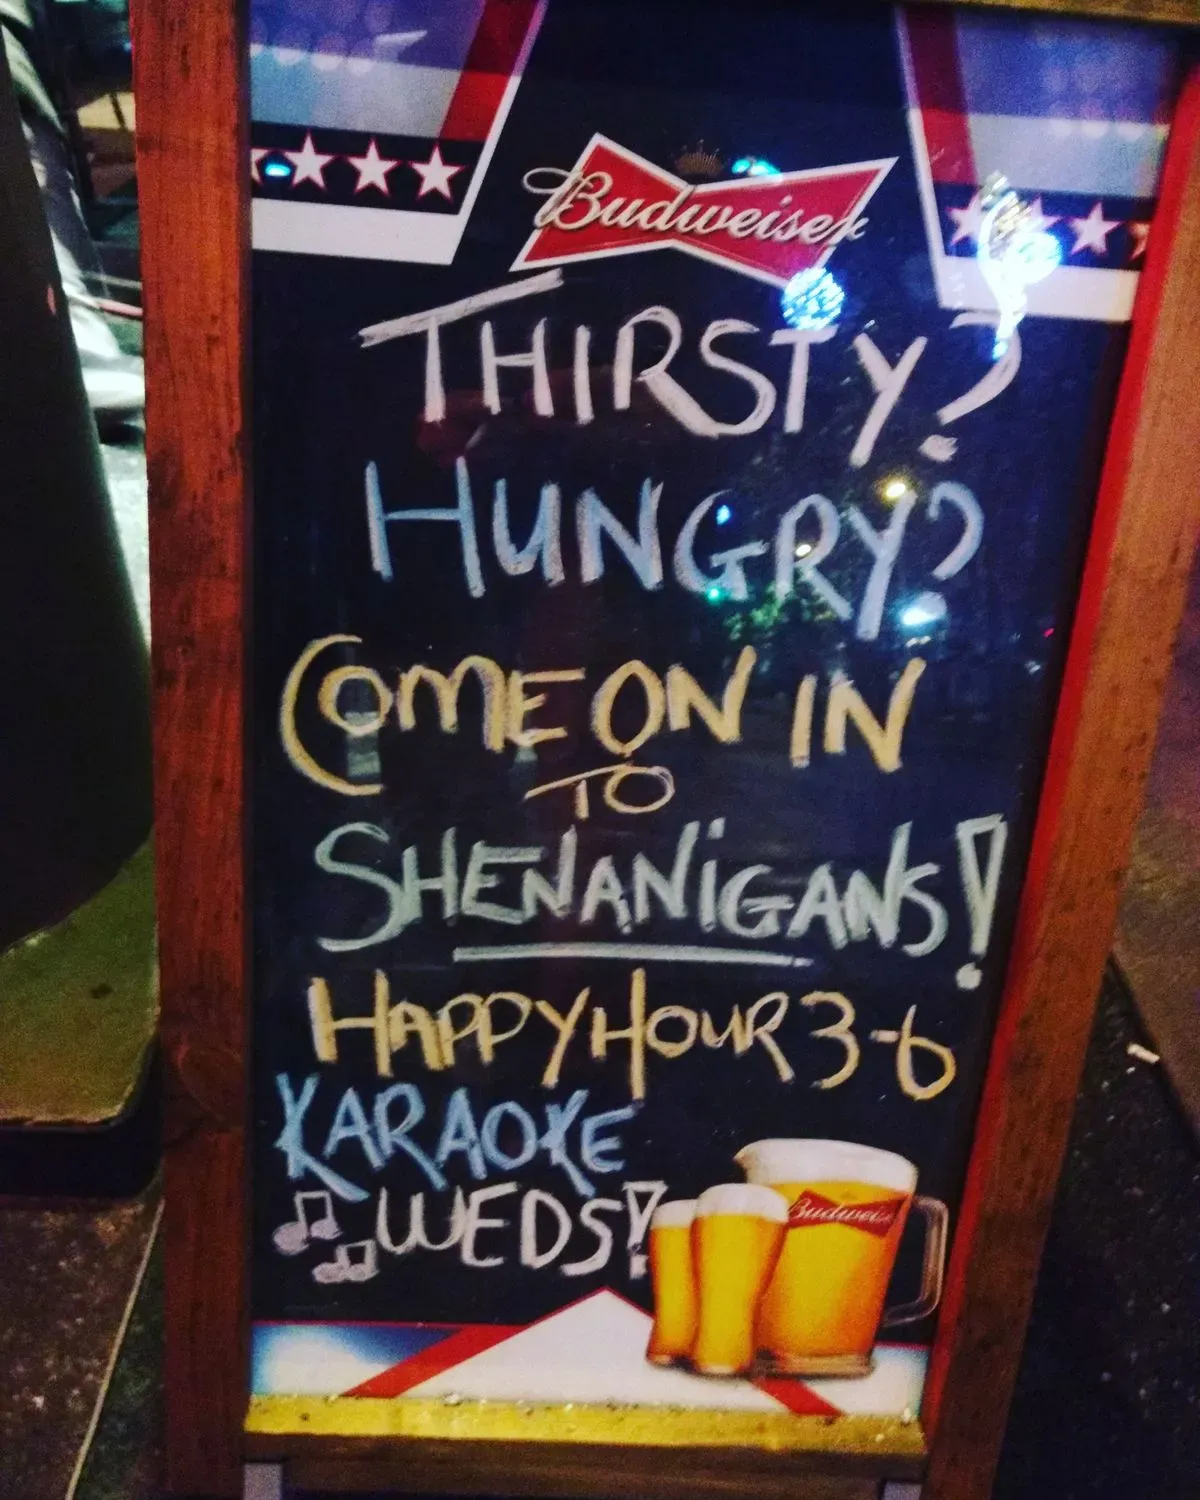 Budweiser
THIRSTY?
HUNGRY?
COME ON IN
TO
SHENANiGANS!
HAPPY HOUR 3-6
KARAOKE
WEDS!
Budweiser